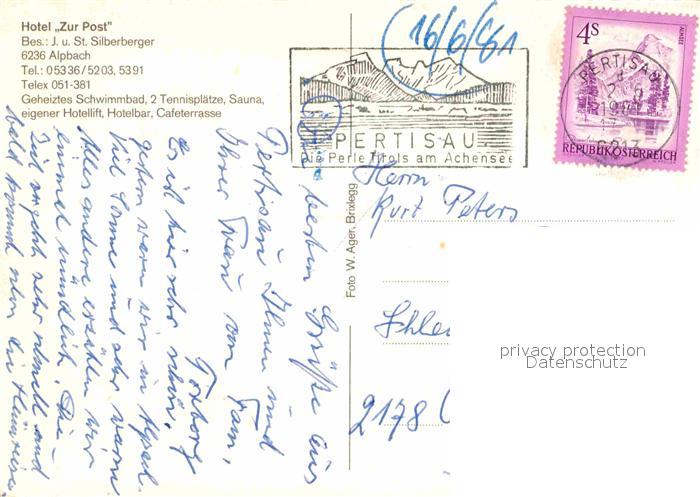 Hotel „Zur Post"
Bes.: J. u. St. Silberberger
6236 Alpbach
Tel.: 05336/5203, 5391
Telex 051-381
Geheiztes Schwimmbad, 2 Tennisplätze, Sauna,
eigener Hotellift, Hotelbar, Cafeterrasse
16/6/61
4S
ALMSEE
REPUBLIK ÖSTERREICH
PERTISAU
PERTISAU
Die Perle Tirols am Achensee
Herrn
Kurt Peters
2178
Foto W. Ager, Brixlegg
besten Grüße aus
Pertisau Ihnen und
Ihrer Frau von Fam.
Es ist hier sehr schön.
gestern waren wir in Alpach.
Viel Sonne und sehr warm
Alles andere erzählen wir
einmal mündlich. Die
Zeit vergeht sehr schnell und
bald kommt schon die Heimreise
privacy protection
Datenschutz